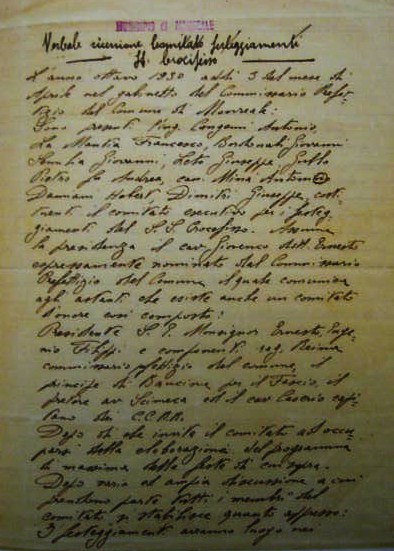 MUNICIPIO DI MONREALE
Verbale riunione Comitato festeggiamenti
SS. Crocifisso
L'anno ottavo 1930 addì 3 del mese di
Aprile nel gabinetto del Commissario Prefet-
tizio del Comune di Monreale:
Sono presenti l'ing. Congemi Antonio,
La Mantia Francesco, Giovanni
Giovanni, Leto Giuseppe, Gullo
Pietro fu Andrea, cav. Mina Antonio
Damiani Dimitri Giuseppe, costi-
tuenti il comitato esecutivo per i festeg-
giamenti del S.S. Crocifisso. Assume
la presidenza il cav. Giovenco dott. Ernesto
espressamente nominato dal Commissario
Prefettizio del Comune, il quale comunica
agli astanti che esiste anche un comitato
d'onore così composto:
Presidente S. E. Monsignor Ernesto Euge-
nio Filippi e componenti rag. Reina
commissario prefettizio del comune, il
principe di Baucina per il Fascio, il
pretore av. Scimeca ed il cav. capi-
tano dei C.C.R.R.
Dopo di che invita il comitato ad occu-
parsi della elaborazione del programma
di massima della festa di cui sopra.
Dopo varia ed ampia discussione a cui
prendono parte tutti i membri del
comitato si stabilisce quanto appresso:
I festeggiamenti avranno luogo nei